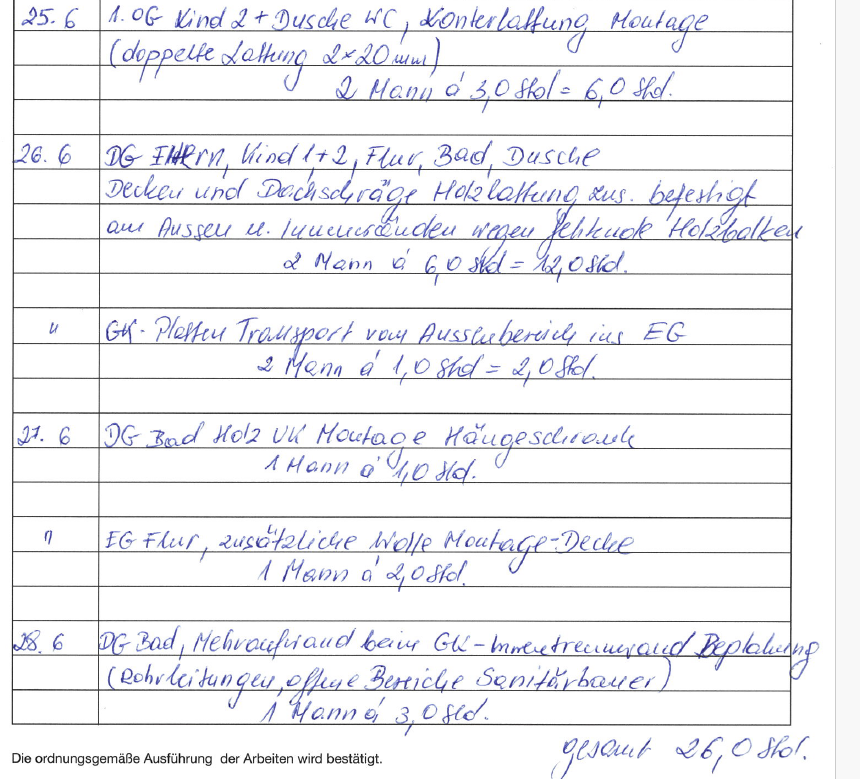 25.6 1. OG Kind 2 + Dusche WC, Konterlattung Montage
(doppelte Lattung 2x20mm)
2 Mann á 3,0 Std = 6,0 Std.
26.6 DG Eltern, Kind 1+2, Flur, Bad, Dusche
Decken und Dachschräge Holzlattung zus. befestigt
am Aussen u. Innenwänden wegen fehlende Holzbalken
2 Mann á 6,0 Std = 12,0 Std.
" GK-Platten Transport vom Aussenbereich ins EG
2 Mann á 1,0 Std = 2,0 Std.
27.6 DG Bad Holz UK Montage Hängeschrank
1 Mann á 1,0 Std.
" EG Flur, zusätzliche Wolle Montage-Decke
1 Mann á 2,0 Std.
28.6 DG Bad, Mehraufwand beim GK-Innentrennwand Beplankung
(Rohrleitungen, offene Bereiche Sanitärbauer)
1 Mann á 3,0 Std.
gesamt 26,0 Std.
Die ordnungsgemäße Ausführung der Arbeiten wird bestätigt.